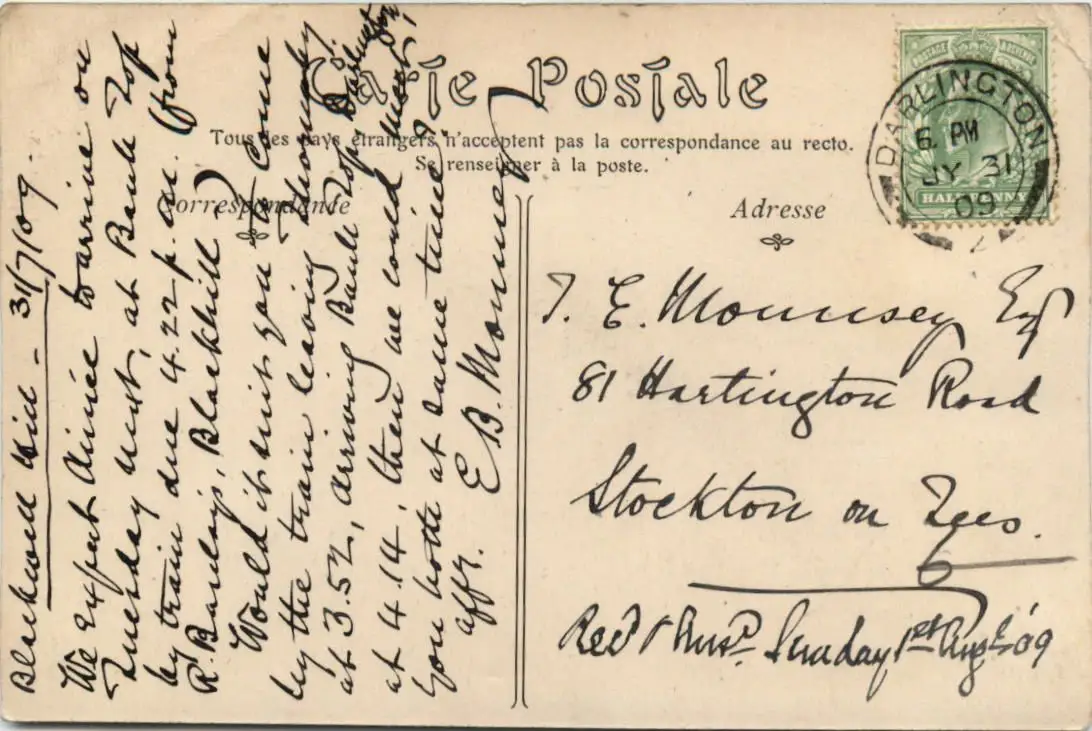 Carte Postale
Tous les pays étrangers n'acceptent pas la correspondance au recto.
Se renseigner à la poste.
Correspondance
Adresse
POSTAGE
HALFPENNY
DARLINGTON
6 PM
JY 31
09
Blackwell 31/7/09.
We expect Aimée to arrive on
Tuesday next, at Bank Top
by train due 4.22 p.m. (from
R. Barclay's, Blackhill)
Would it suit you to come
by the train leaving Thornaby
at 3.52, arriving Bank Top, Darlington
at 4.14, then we could meet
you both at same time?
affy.
E B. Mounsey
J. E. Mounsey Esq
81 Hartington Road
Stockton on Tees.
Recd & Ansd. Sunday 1st Aug '09